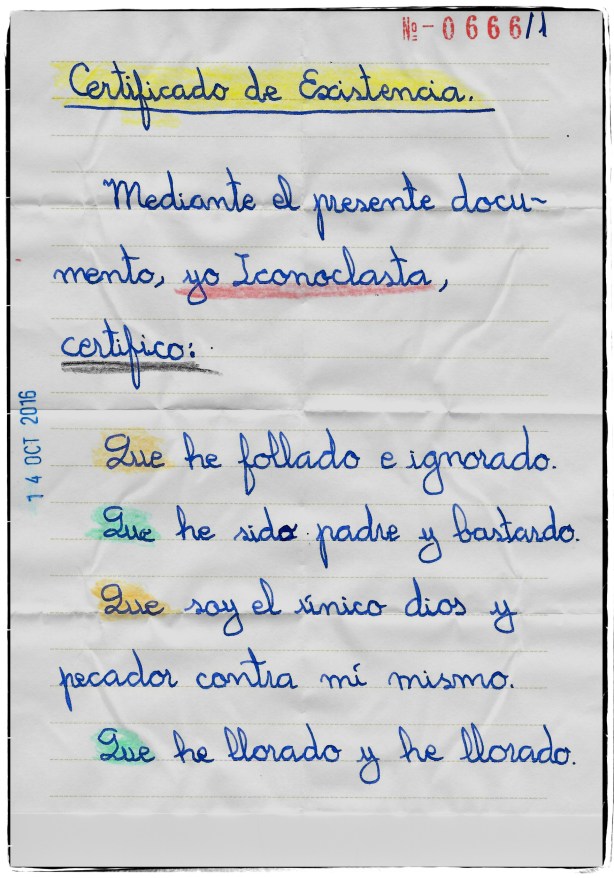 Nº-0666/1
Certificado de Existencia.
Mediante el presente docu-
mento, yo Iconoclasta,
certifico:
14 OCT 2016
Que he follado e ignorado.
Que he sido padre y bastardo.
Que soy el único dios y
pecador contra mí mismo.
Que he llorado y he llorado.